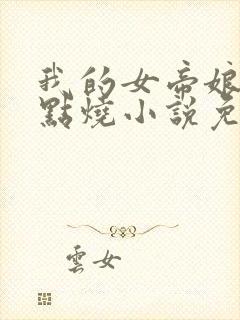 我的女帝娘
點燒小說免
雲女